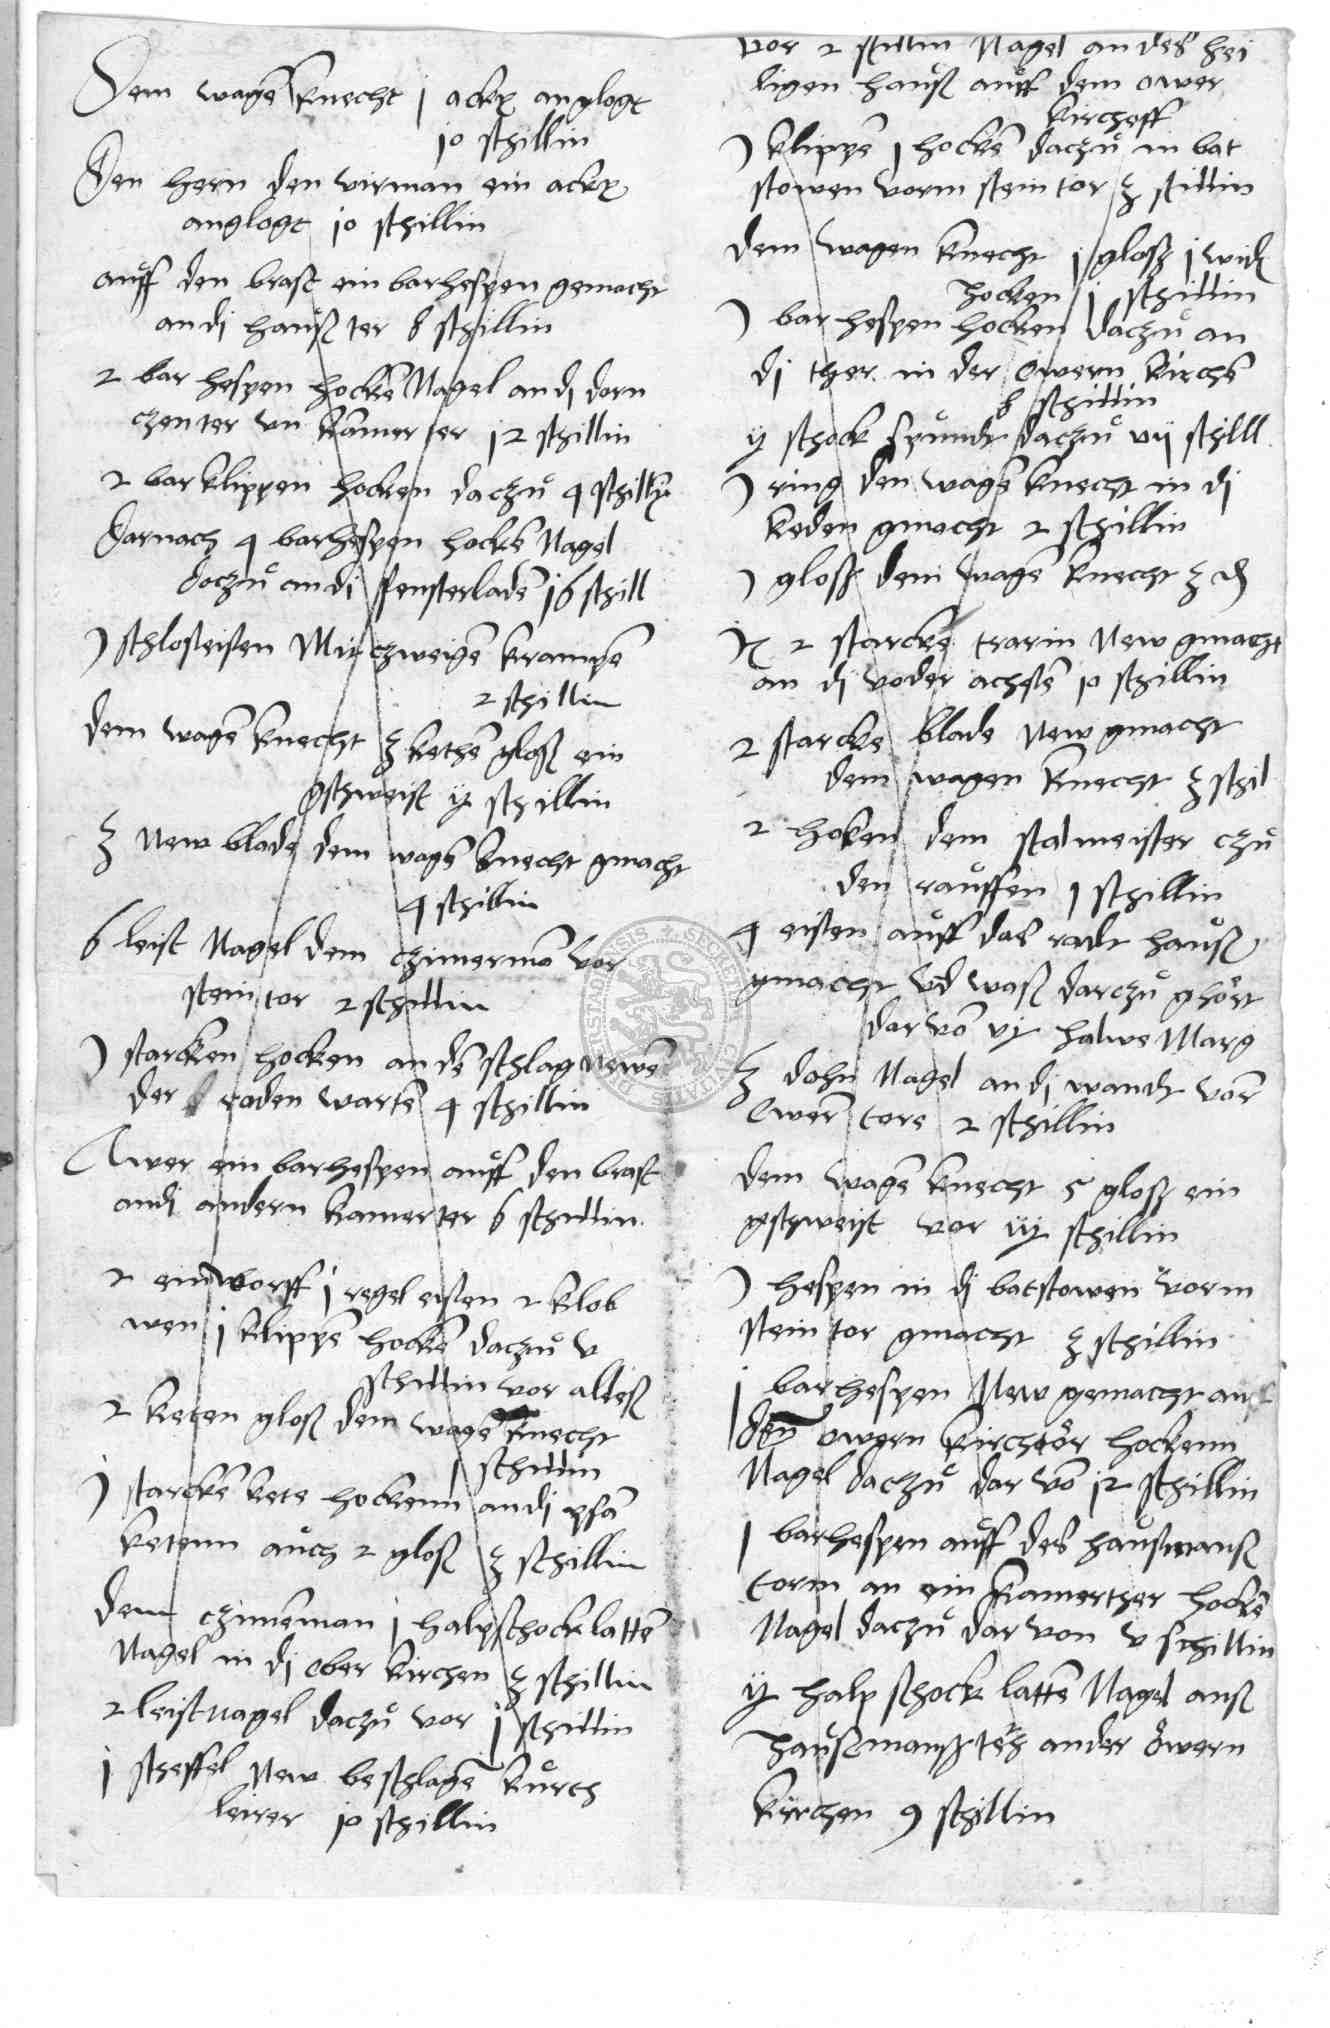 Dem wagẽ knecht j ackx anglogt
jo schillin
Den hern den virman ein ackx
anglogt jo schillin
auff den brast ein barhespen gemacht
an di hauß ter 8 schillin
2 bar hespen hockẽ Nagel an di dorn
czen ter vn kamer ter j2 schillin
2 bar klippen hocken daczu 4 schillin
Darnach 4 barhespen hockẽ Nagel
doczu an di fensterladẽ j6 schill
j schlosteisen Mit czweigẽ krampẽ
2 schillin
dem wagẽ knecht 3 kethẽ gloß ein
gschweist ij schillin
3 New blade dem wagẽ knecht gmacht
4 schillin
6 leist Nagel dem czimermã vor
stein tor 2 schillin
j starcken hocken an dẽ schlag newẽ
der roden wartẽ 4 schillin
Awer ein barhespen auff den brast
andi andern kamer ter 6 schillin
2 ein worff j regel eisen 2 klob
wen j klippẽ hockẽ daczu v
schillin vor alles
2 keten gloß dem wagẽ knecht
j schillin
j starckẽ kete hockenn an di pfã
ketenn auch 2 gloß 3 schillin
Dem czimerman j halp schock lattẽ
Nagel in di ober kirchen 3 schillin
2 leist nagel daczu vor j schillin
j scheffel New beschlagẽ kurtz
leirer jo schillin
vor 2 schillin Nagel an des hei
ligen hauß auff dem ower
kircheff
j klippẽ j hockẽ daczu in bat
stowen vorm stein tor 3 schillin
dem wagen knecht j gloß j wid
hocken j schillin
j bar hespen hocken daczu an
di ther in der owern kirchẽ
8 schillin
ij schock spundt daczu vij schilll
j ring den wagẽ knecht in di
keden gmacht 2 schillin
j gloß dem wagẽ knecht 3 d
2 starcke trarin New gmacht
an di voder achsẽ jo schillin
2 starcke blade New gmacht
dem wagen knecht 3 schil
2 hoken dem stalmeister czu
den rauffen j schillin
4 eisen auff das radt hauß
gmacht vd waß darczu ghort
dar võ vj halwe Marg
3 dohn Nagel an di wandt vor
Owerñ tore 2 schillin
dem wagẽ knecht 5 gloß ein
gschweist vor iij schillin
j hespen in di batstowen vorm
stein tor gmacht 3 schillin
j barhespen New gemacht auf
den owern kirchtör hockenn
Nagel daczu dar võ j2 schillin
j barhespen auff des haußmanß
torm an ein kamerther hockẽ
Nagel daczu dar von v schillin
ij halp schock lattẽ Nagel anß
haußmanß ander öwern
kirchen 9 schillin